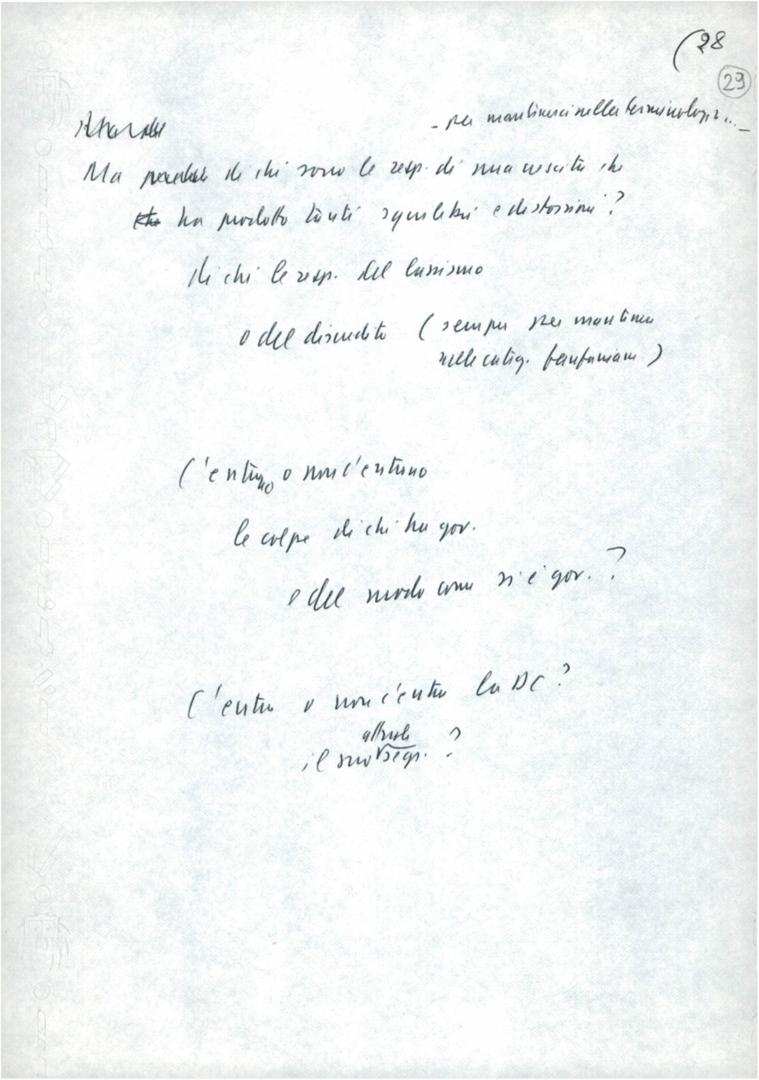 (28
29
- per mantenerci nella terminologia... -
Ma di chi sono le resp. di una crescita che
ha prodotto tanti squilibri e distorsioni?
di chi le resp. del lassismo
o del discredito (sempre per mantenerci
nelle categ. fanfaniane)
C'entrano o non c'entrano
le colpe di chi ha gov.
e del modo come si è gov.?
C'entra o non c'entra la DC?
attuale
il suo segr. ?